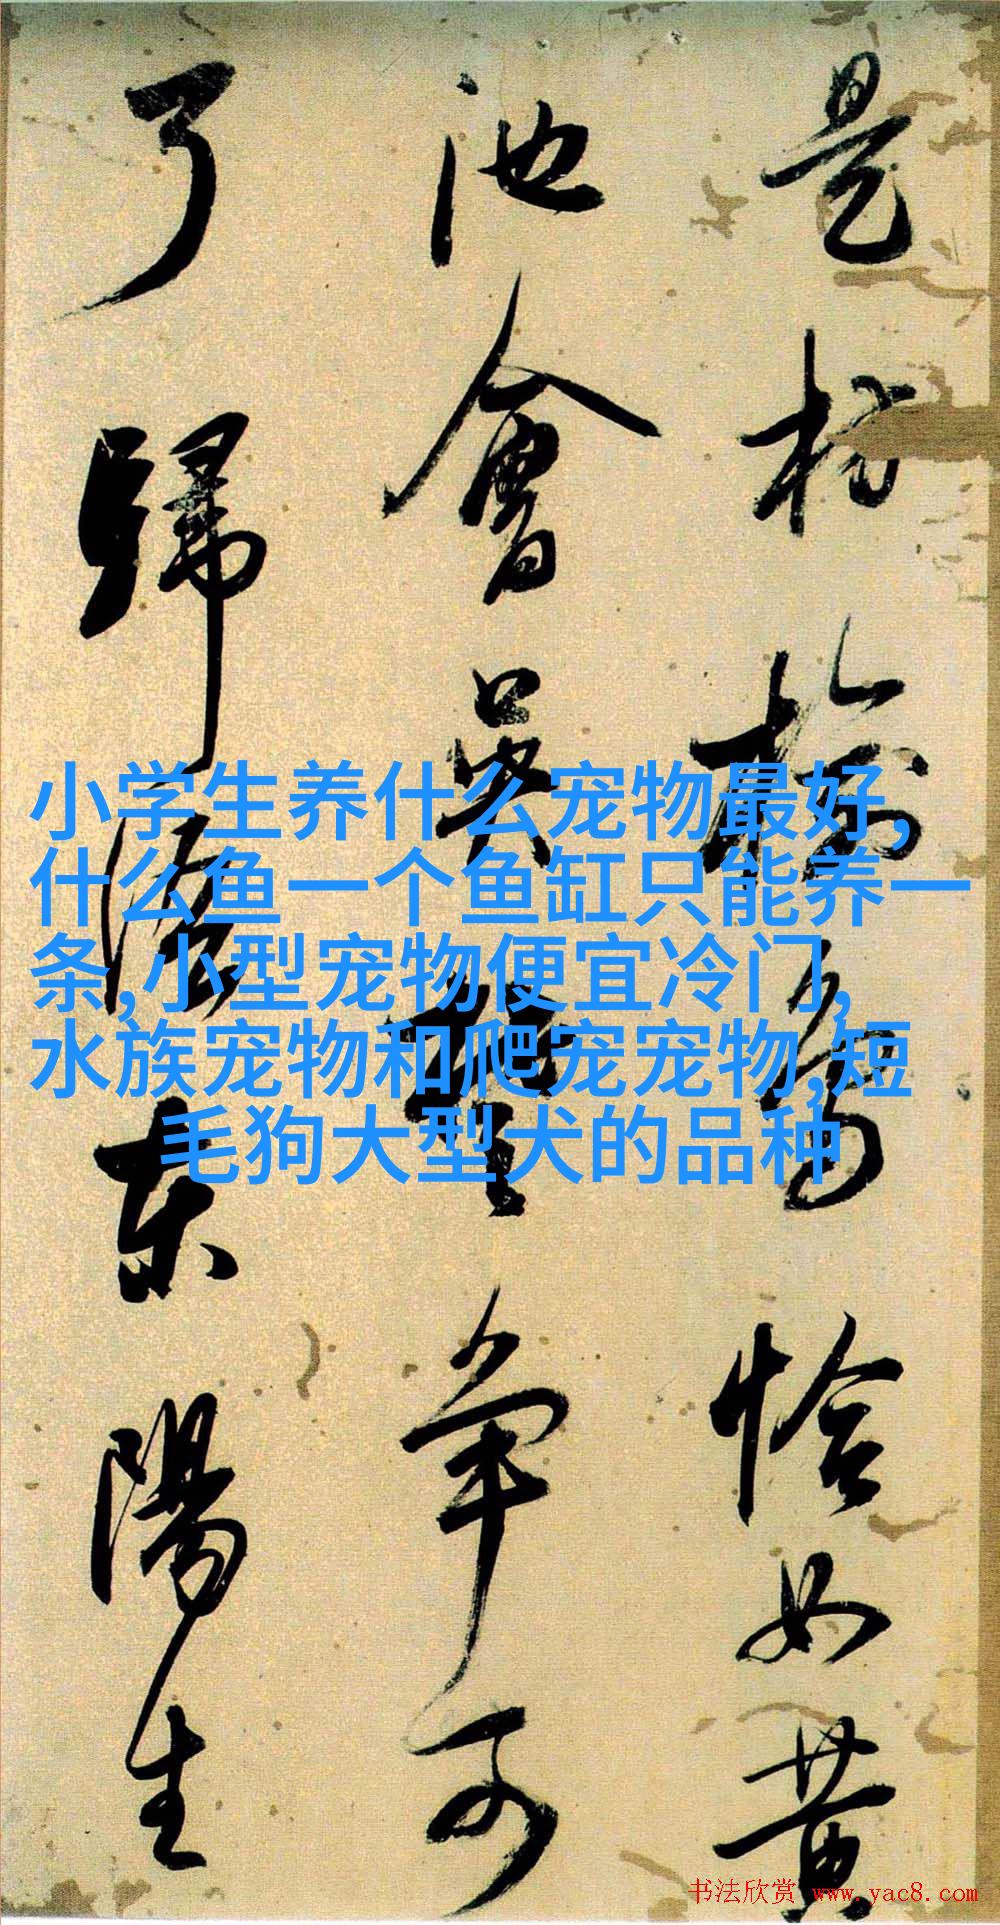 是枋榆為恰如黃
池會異爭可
了歸東陽生
小学生养什么宠物最好,
什么鱼一个鱼缸只能养一
条,小型宠物便宜冷门,
水族宠物和爬宠宠物,短
毛狗大型犬的品种
书法欣赏 www.yac8.com